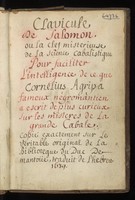 Clavicule
De Salomon
ou la clef misterieuse
de la science cabalistique
Pour faciliter
l'intelligence de ce que
Cornelius Agripa
fameux negromantien
a escrit de plus curieux
sur les misteres de la
grande Cabale
copié exactement sur le
veritable original de la
Biblioteque du Duc de
mantoüe, traduit de l'hebreu
1634